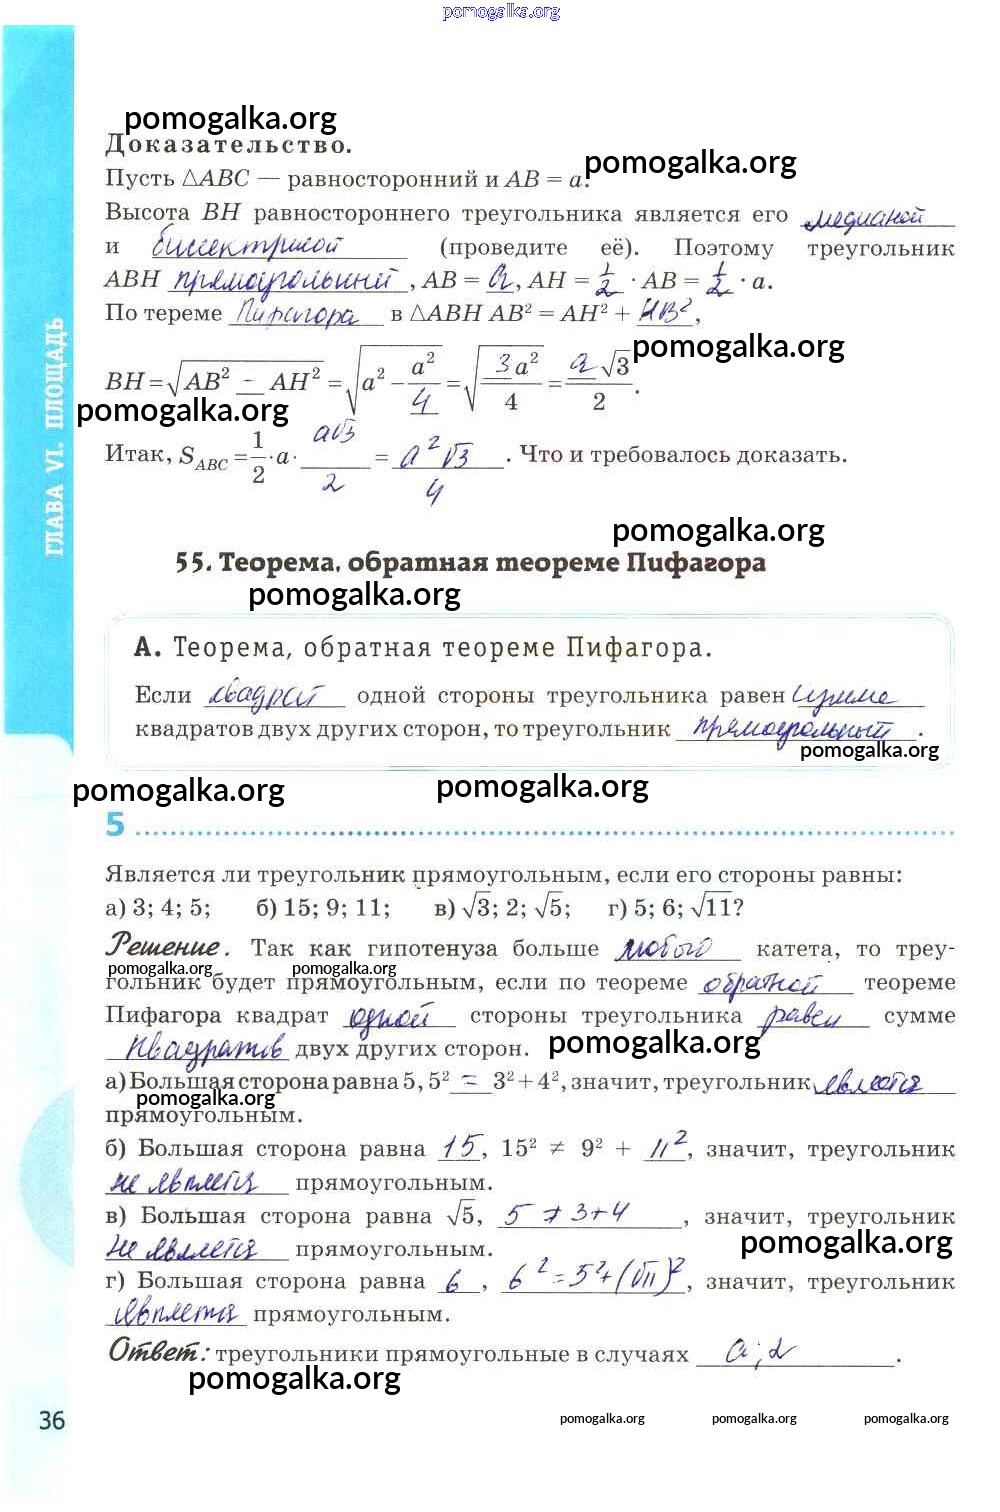 pomogalka.org
pomogalka.org
Доказательство.
pomogalka.org
Пусть △ABC — равносторонний и AB = a.
Высота BH равностороннего треугольника является его медианой
и биссектрисой (проведите её). Поэтому треугольник
ABH прямоугольный, AB = a, AH = 1/2 · AB = 1/2 · a.
По тереме Пифагора в △ABH AB² = AH² + HB²,
pomogalka.org
BH = √(AB² − AH²) = √(a² − a²/4) = √(3a²/4) = a√3/2.
pomogalka.org
Итак, S_ABC = 1/2 · a · a√3/2 = a²√3/4. Что и требовалось доказать.
ГЛАВА VI. ПЛОЩАДЬ
pomogalka.org
55. Теорема, обратная теореме Пифагора
pomogalka.org
А. Теорема, обратная теореме Пифагора.
Если квадрат одной стороны треугольника равен сумме
квадратов двух других сторон, то треугольник прямоугольный.
pomogalka.org
pomogalka.org pomogalka.org
5
Является ли треугольник прямоугольным, если его стороны равны:
а) 3; 4; 5; б) 15; 9; 11; в) √3; 2; √5; г) 5; 6; √11?
Решение. Так как гипотенуза больше любого катета, то треу-
pomogalka.org pomogalka.org
гольник будет прямоугольным, если по теореме обратной теореме
Пифагора квадрат одной стороны треугольника равен сумме
квадратов двух других сторон. pomogalka.org
а) Большая сторона равна 5, 5² = 3² + 4², значит, треугольник является
pomogalka.org
прямоугольным.
б) Большая сторона равна 15, 15² ≠ 9² + 11², значит, треугольник
не является прямоугольным.
в) Большая сторона равна √5, 5 ≠ 3+4, значит, треугольник
не является прямоугольным. pomogalka.org
г) Большая сторона равна 6, 6² = 5² + (√11)², значит, треугольник
является прямоугольным.
Ответ: треугольники прямоугольные в случаях а; г.
pomogalka.org
36
pomogalka.org pomogalka.org pomogalka.org